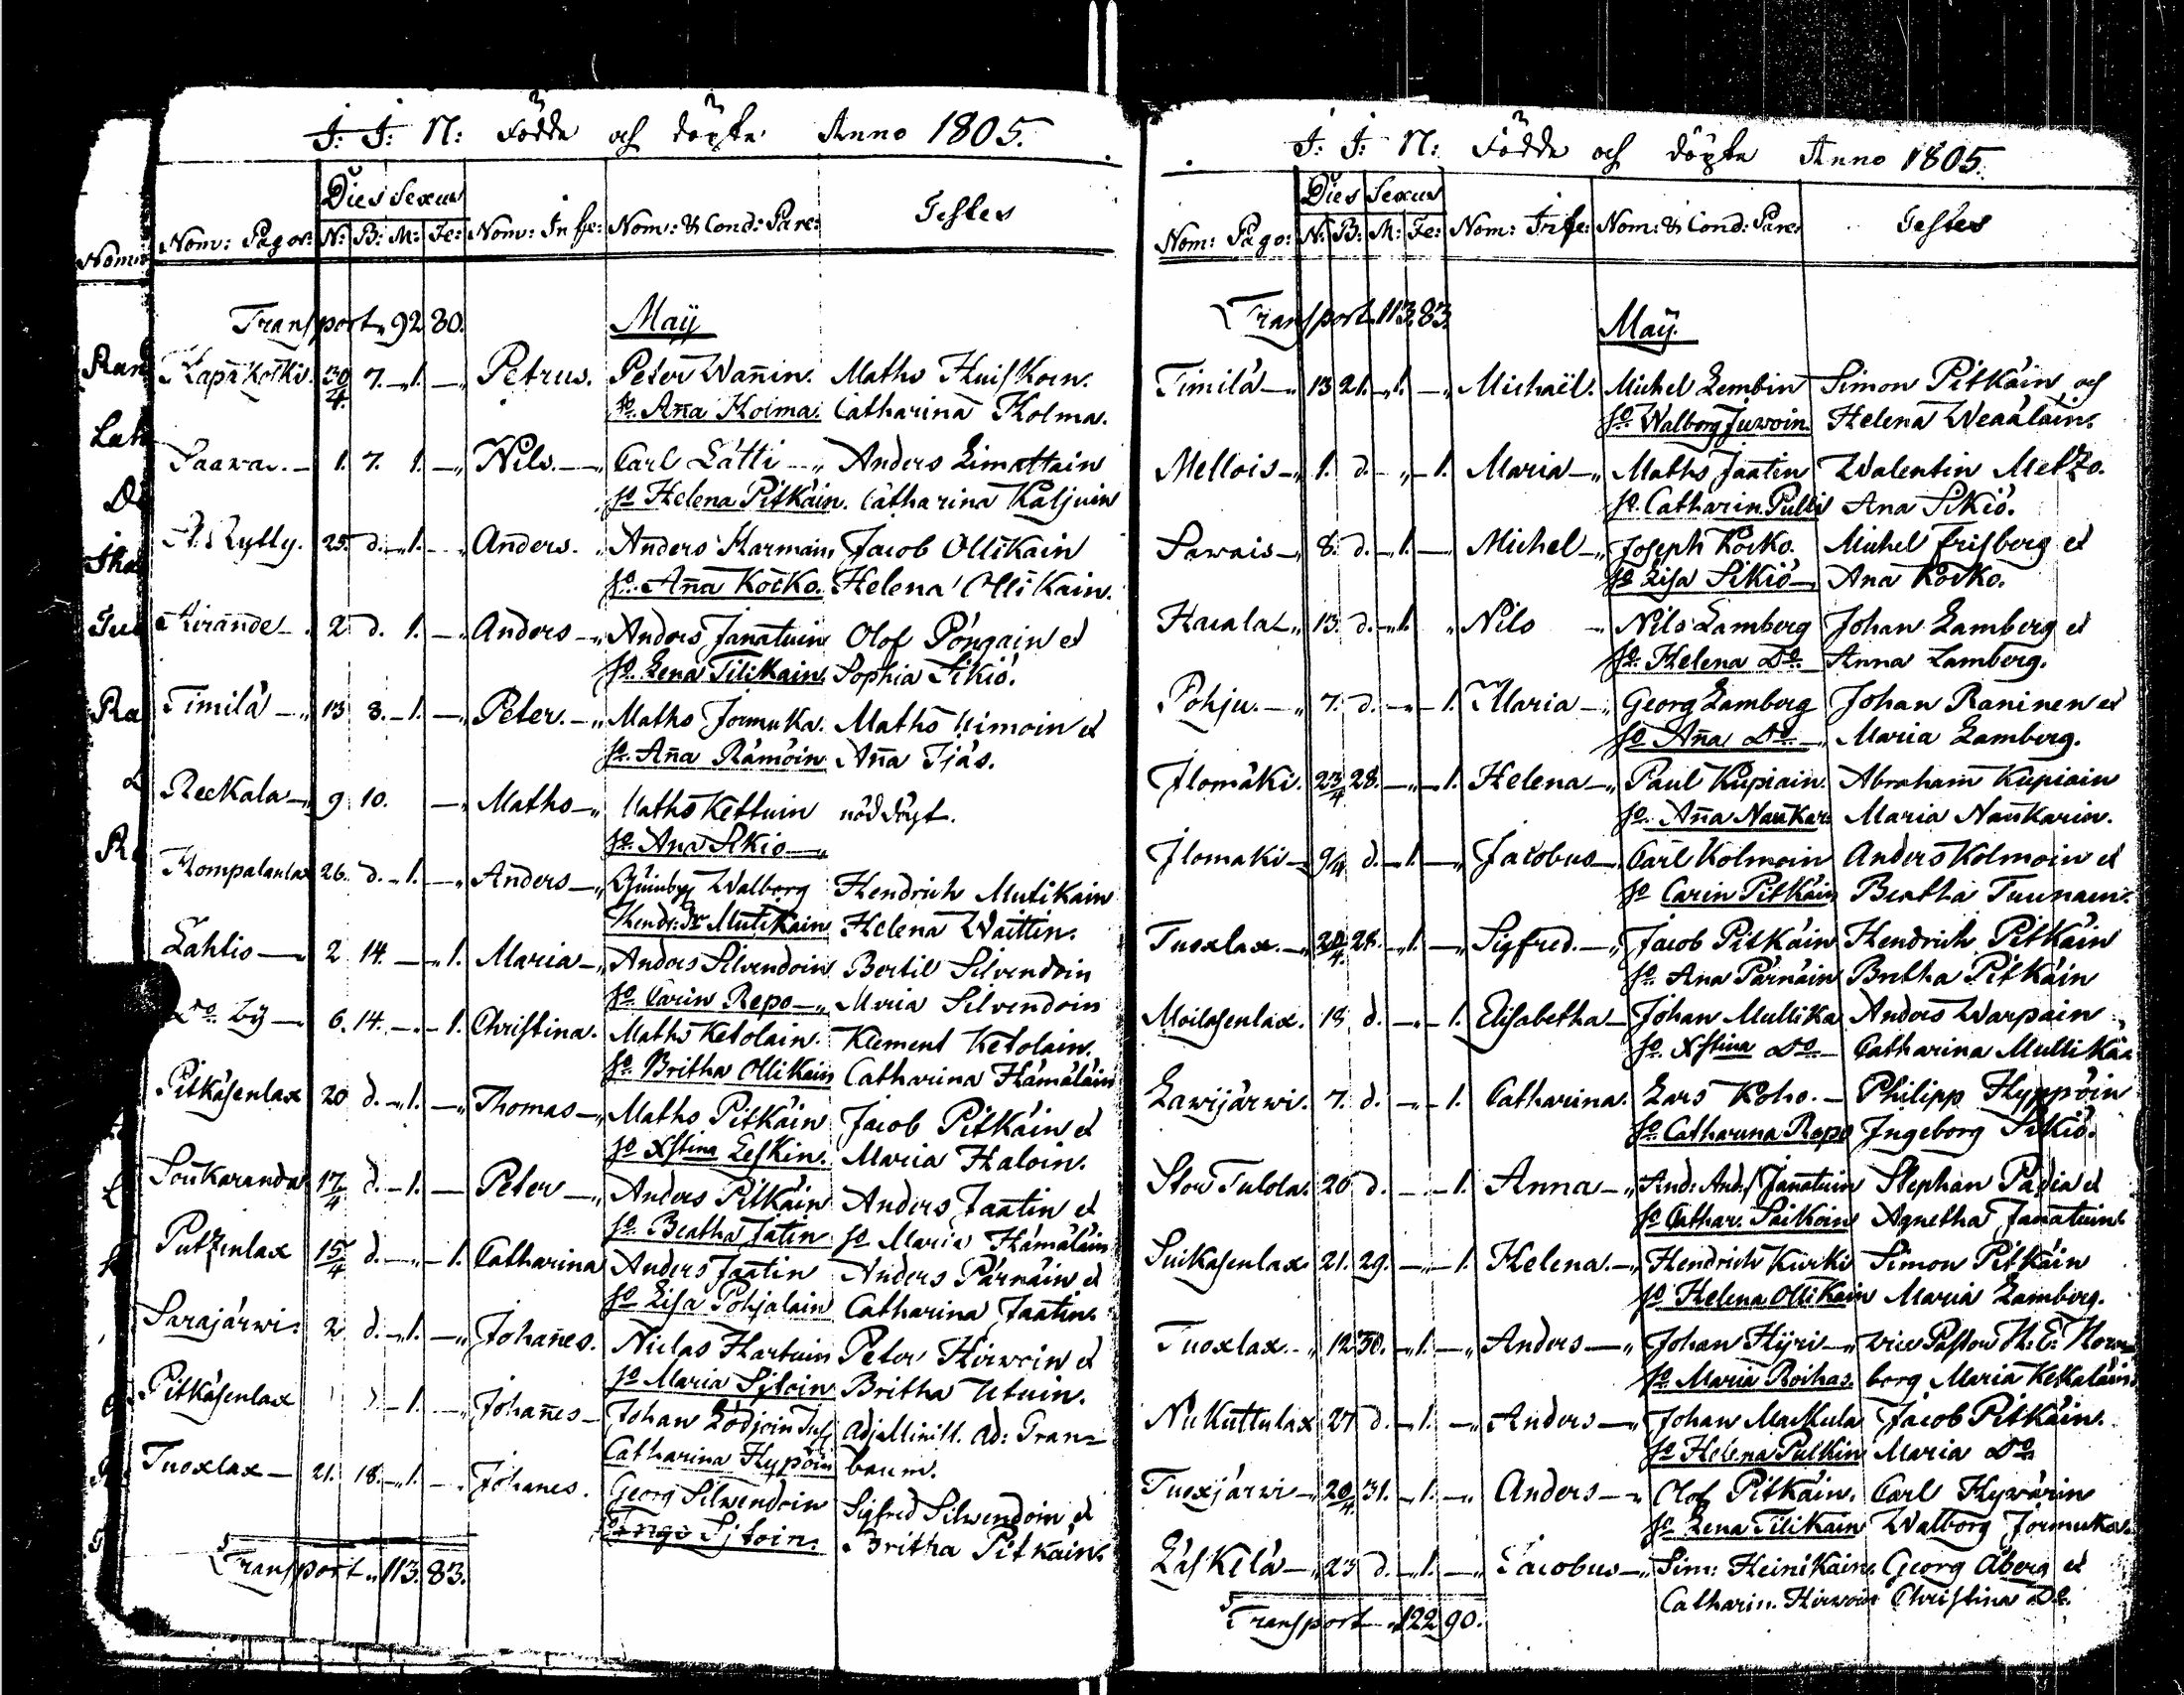 J: J: N: Födde och döpte Anno 1805.
Dies Sexus
Nom: Pagor: N: B: M: Fe: Nom: Infe: Nom: & Cond: Pare: Testes
Transport „ 92 80. Maÿ
30/4. 7. „ 1. — „ Petrus. Peter Wañin. Maths Huiskoin.
h. Aña Kolma. Catharina Kolma.
Saavai. — 1. 7. 1. — „ Nils. — „ Carl Lätti — „ Anders Limattain
h. Helena Pitkäin. Catharina Kaljuin
25. d. „ 1. — Anders. „ Anders Karmain Jacob Ollikain
h. Aña Kocko. Helena Ollikain.
Kirañde — . 2 d. 1. — „ Anders — „ Anders Janatuin Olof Pöngain et
h. Lena Tilikain. Sophia Sikiö.
Timilä — „ 13 8. — 1. — „ Peter. — „ Maths Jormuka. Maths Kimoin et
h. Aña Rämöin Aña Tjäs.
Reckala — „ 9 10. — „ Maths — „ Maths Kettuin nöd döpt.
h. Ana Sikio — „
Kompalanlax 26. d. „ 1. — „ Anders — „ Walborg Hendrich Mutikain
Hendr: Dr Mutikain Helena Waittin.
Lahlis — 2 14. — „ 1. Maria — „ Anders Silvendoin Bertil Silvendoin
h. Carin Repo — „ Maria Silvendoin
Do. bÿ — 6. 14. — „ 1. Christina. Maths Ketolain. Klement Ketolain.
h. Britha Ollikain Catharina Hämäläin
Pitkäsenlax 20 d. „ 1. — „ Thomas — „ Maths Pitkäin Jacob Pitkäin et
h. Xstina Leskin. Maria Haloin.
Soukaranda 17/4 d. — 1. — Peter — „ Anders Pitkäin Anders Jaatin et
h. Beatha Jatin h. Maria Hämäläin
Putzinlax 15/4 d. — „ — 1. Catharina Anders Jaatin Anders Pärnäin et
h. Lisa Pohjalain Catharina Jaatin.
Sarajärwi. 2 d. „ 1. — „ Johañes. Niclas Hartuin Peter Hirwoin et
h. Maria Sitoin Britha Utuin.
Pitkäsenlax — 1. — „ Johañes — Johan Lödjoin Adj. Minist. Ad: Gran=
Catharina Hypöin baum.
Tuoxlax — 21. 18. „ 1. — Johanes. Georg Silwendoin Sigfred Silwendoin et
h. Inge Sitoin. Britha Pitkäin.
Transport „ 113. 83.
J: J: N: Födde och döpte Anno 1805.
Dies Sexus
Nom: Pago: N: B: M: Fe: Nom: Infe: Nom: & Cond: Pare: Testes
Transport 113. 83. Maÿ.
Timilä — „ 13 21. „ 1. — „ Michaël. Michel Lembin Simon Pitkäin och
h. Walborg Juwoin. Helena Weäläin.
Mellois — „ 1. d. — „ — 1. Maria — „ Maths Jaatin Walentin Metzo.
h. Catharin. Pulli Ana Sikiö.
Sawais — „ 8. d. „ 1. — „ Michel — „ Joseph Kocko. Michel Frisberg et
h. Lisa Sikiö — „ Ana Kocko.
Havala „ 13. d. „ 1. „ Nils — Nils Lamberg Johan Lamberg et
h. Helena Do. — Anna Lamberg.
Pohju. — „ 7. d. — „ — 1. Maria — „ Georg Lamberg Johan Raninen et
h. Aña Do. — „ Maria Lamberg.
Jlomäki. 23/4 28. — „ — 1. Helena — „ Paul Kupiain. Abraham Kupiain
h. Aña Naukar. Maria Naukarin.
Jlomaki — 9/4 d. — 1. — „ Jacobus — „ Carl Kolmoin Anders Kolmoin et
h. Carin Pitkäin Beatha Tuunain.
Tuoxlax. — „ 20/4 28. „ 1. — „ Sigfred. — „ Jacob Pitkäin Hendrich Pitkäin
h. Ana Pärnäin Britha Pitkäin
Moilasenlax. 18 d. — „ — 1. Elisabetha — Johan Mullika Anders Warpain
h. Xstina Do. — Catharina Mullikäi
Lawijärwi. 7. d. — „ — 1. Catharina. Lars Koho. — Philipp Hyppöin
h. Catharina Repo Jngeborg Sikiö.
Stor Tulola. 20 d. — „ — 1. Anna — „ And: And:s Janatuin Stephan Padia et
h. Cathar. Saikoin Agnetha Janatuin.
Suikasenlax 21. 29. — „ — 1. Helena. — „ Hendrich Kurki Simon Pitkäin
h. Helena Ollikain Maria Lamberg.
Tuoxlax. — „ 12 30. „ 1. — „ Anders — „ Johan Hÿri — „ vice Pastor H. E. Horn
h. Maria Roihas. borg Maria Kekäläin.
Nukuttulax 27 d. „ 1. — „ Anders — „ Johan Mackula Jacob Pitkäin.
h. Helena Pulkin Maria Do
Tuoxjärwi — „ 20/4 31. „ 1. — „ Anders — „ Olof Pitkäin. Carl Hywärin
h. Lena Tilikain Walborg Jormuka.
Läskelä — „ 23 d. „ 1. — „ Jacobus — „ Sim: Heinikain. Georg Åberg et
Catharin. Hirwoin Christina Do.
Transport „ 122 90.